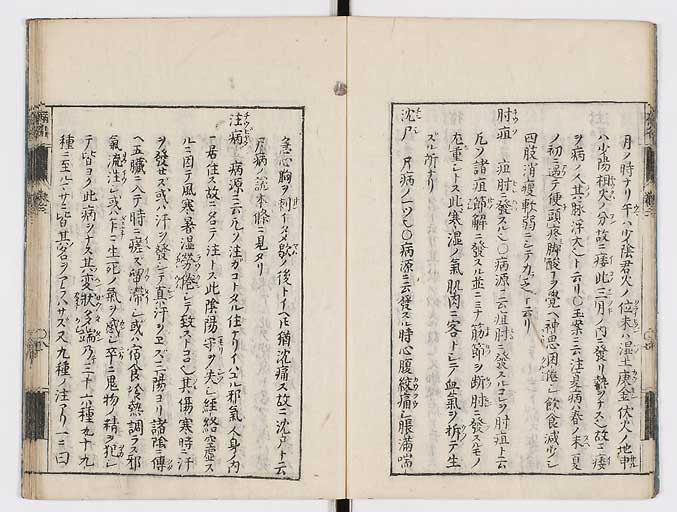 月ノ時ナリ午ハ少陰君火ノ位未ハ湿土庚金伏火ノ地申
ハ少陽相火ノ分故ニ痿此三月ノ内ニ發リ熱ヲナス丨故ニ痿
ヲ病ノ人其脉浮大丨ト云リ〇玉案ニ云注夏病ハ春ノ末夏
ノ初ニ遇テ便頭疼脚酸丨ヲ覚ヘ神思困倦丨飲食減少丨
四肢消瘦軟弱ニ丨テ力乏丨ト云リ
肘疽 疽肘ニ發スル丨〇病源ニ云疽肘ニ發スルヨシヲ肘疽ト云
凡ソ諸疽節解ニ發スル並ニミナ筋節ヲ断肘ニ發スルモノ
尤重丨トス此寒湿ノ氣肌肉ニ客ト丨テ血氣ヲ折テ生
ズル所ナリ
沈尸 尸病ノ一ツ丨〇病源ニ云發スル時心腹絞痛丨脹滿喘丨
急心胸ヲ刺
歇ノ後
猶沈痛ス故ニ沈尸ト云
尸病ノ説本條ニ見タリ
注病 病源ニ云凡ソ注ガコトタル住ナリイハユル邪氣人身ノ内
ニ居住ス故ニ名テ注トス此陰陽守ヲ失丨經絡空虚ス
ルニ因テ風寒暑湿勞倦丨テ致ストコロ丨其傷寒時ニ汗
ヲ發セズ或ハ汗ヲ發丨テ真ノ汗ヲヱズ三陽ヨリ諸陰ニ傳
ヘ五臓ニ入テ時ニ瘥ス留滯丨或ハ宿食冷熱調ラス邪
氣流注丨或ハ乍ニ生死ノ氣ヲ感丨卒ニ鬼物ノ精ヲ犯丨
テ皆ヨク此病ヲナス其変状多端乃三十六種九十九
種ニ至ル
皆其名ヲアラハサズ又九種ノ注アリ一ニ曰